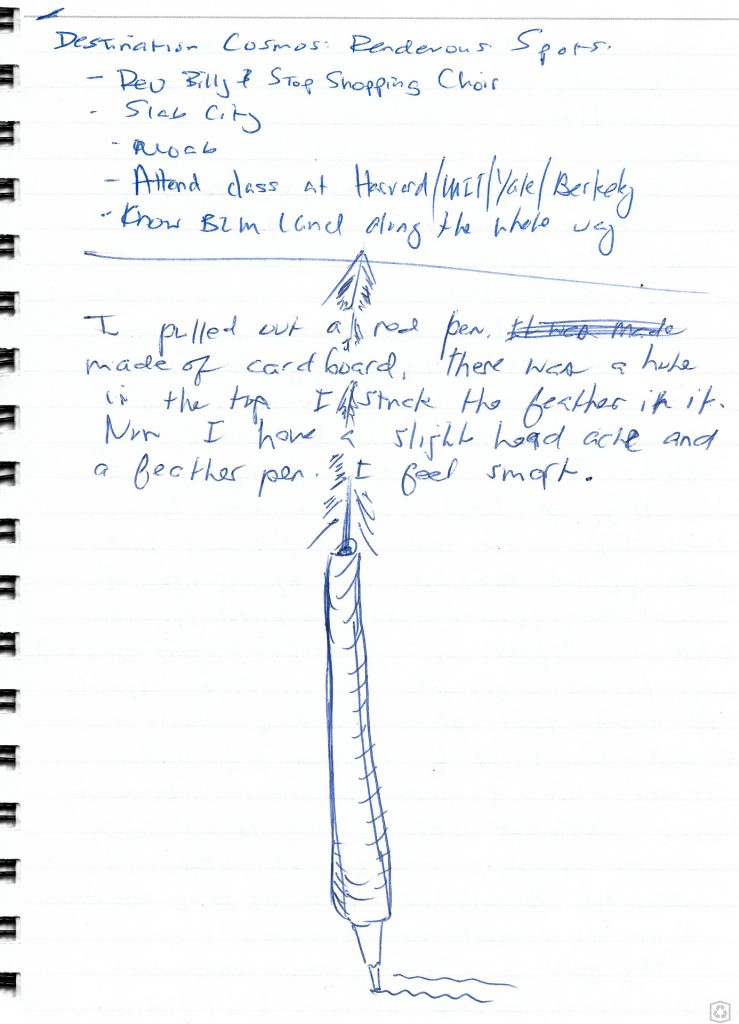 Destination Cosmos: Rendervous Spots.
- Rev Billy & Stop Shopping Choir
- Slab City
- Moab
- Attend class at Harvard/MIT/Yale/Berkely
- Know BLM land along the whole way
I pulled out a pen. It was made
made of cardboard, there was a hole
in the top I stuck the feather in it.
Now I have a slight head ache and
a feather pen. I feel smart.